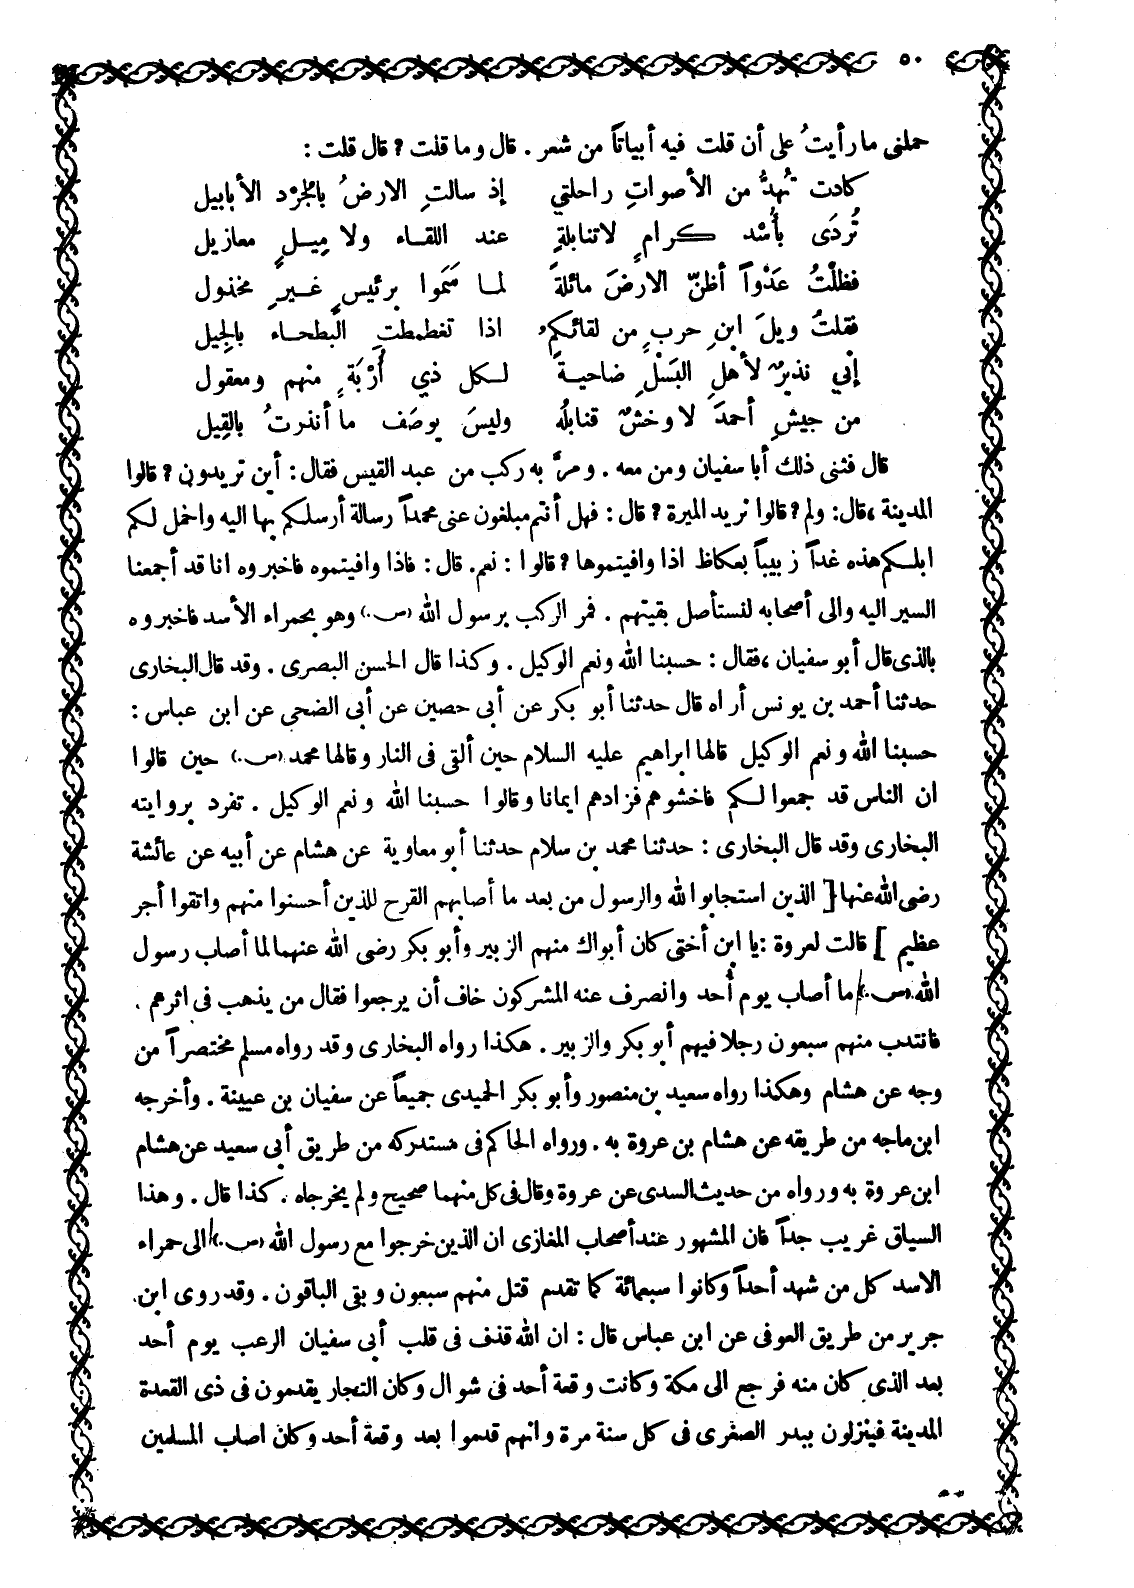 ٥٠
حملنى ما رأيتُ على أن قلت فيه أبياتاً من شعر . قال وما قلت ? قال قلت :
كادت تُهدُّ من الأصواتِ راحلتي إذ سالتِ الارضُ بالجُرْد الأبابيل
تُردَى بأُسْد كرامٍ لاتنابلةٍ عند اللقاء ولا مِيلٍ معازيل
فظلْتُ عَدْواً أظنّ الارضَ مائلةً لما سَمَوا برئيسٍ غيرِ مخذول
فقلتُ ويلَ ابنِ حربٍ من لقائكمُ اذا تغطمطتِ البطحاء بالجِيل
إني نذيرٌ لأهلِ البَسْلِ ضاحيةً لكل ذي أُرْبَةٍ منهم ومعقول
من جيشِ أحمدَ لا وخشٌ قنابلُه وليسَ يوصَف ما أنذرتُ بالقِيل
قال فثنى ذلك أبا سفيان ومن معه . ومرَّ به ركب من عبد القيس فقال : أين تريدون ? قالوا
المدينة ، قال : ولم ? قالوا نريد الميرة ? قال : فهل أنتم مبلغون عنى محمداً رسالة أرسلكم بها اليه واحمل لكم
ابلكم هذه غداً زبيباً بعكاظ اذا وافيتموها ? قالوا : نعم . قال : فاذا وافيتموه فاخبروه انا قد أجمعنا
السير اليه والى أصحابه لنستأصل بقيتهم . فمر الركب برسول الله (ص.) وهو بحمراء الأسد فاخبروه
بالذى قال أبو سفيان ، فقال : حسبنا الله ونعم الوكيل . وكذا قال الحسن البصرى . وقد قال البخارى
حدثنا أحمد بن يونس أراه قال حدثنا أبو بكر عن أبى حصين عن أبى الضحى عن ابن عباس :
حسبنا الله ونعم الوكيل قالها ابراهيم عليه السلام حين ألقى فى النار وقالها محمد (ص.) حين قالوا
ان الناس قد جمعوا لكم فاخشوهم فزادهم ايمانا وقالوا حسبنا الله ونعم الوكيل . تفرد بروايته
البخارى وقد قال البخارى : حدثنا محمد بن سلام حدثنا أبو معاوية عن هشام عن أبيه عن عائشة
رضى الله عنها [ الذين استجابوا لله والرسول من بعد ما أصابهم القرح للذين أحسنوا منهم واتقوا أجر
عظيم ] قالت لعروة : يا ابن أختى كان أبواك منهم الزبير وأبو بكر رضى الله عنهما لما أصاب رسول
الله (ص.) ما أصاب يوم أُحد وانصرف عنه المشركون خاف أن يرجعوا فقال من يذهب فى اثرهم .
فانتدب منهم سبعون رجلا فيهم أبو بكر والزبير . هكذا رواه البخارى وقد رواه مسلم مختصراً من
وجه عن هشام وهكذا رواه سعيد بن منصور وأبو بكر الحميدى جميعاً عن سفيان بن عيينة . وأخرجه
ابن ماجه من طريقه عن هشام بن عروة به . ورواه الحاكم فى مستدركه من طريق أبى سعيد عن هشام
ابن عروة به ورواه من حديث السدى عن عروة وقال فى كل منهما صحيح ولم يخرجاه . كذا قال . وهذا
السياق غريب جداً فان المشهور عند أصحاب المغازى ان الذين خرجوا مع رسول الله (ص.) الى حمراء
الاسد كل من شهد أحداً وكانوا سبعمائة كما تقدم قتل منهم سبعون وبقى الباقون . وقد روى ابن
جرير من طريق العوفى عن ابن عباس قال : ان الله قذف فى قلب أبى سفيان الرعب يوم أحد
بعد الذى كان منه فرجع الى مكة وكانت وقعة أحد فى شوال وكان التجار يقدمون فى ذى القعدة
المدينة فينزلون ببدر الصغرى فى كل سنة مرة وانهم قدموا بعد وقعة أحد وكان اصاب المسلمين